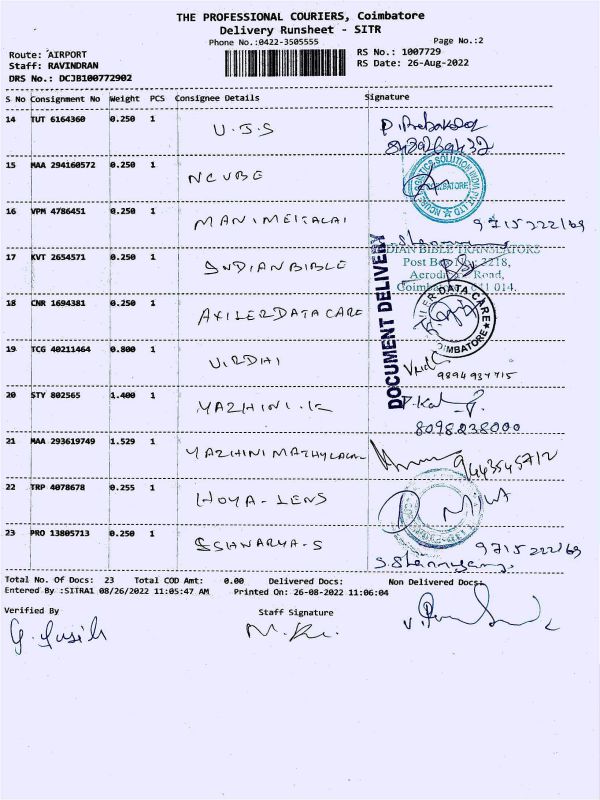 THE PROFESSIONAL COURIERS, Coimbatore
Delivery Runsheet - SITR
Phone No.:0422-3505555
Page No.:2
Route: AIRPORT
RS No.: 1007729
Staff: RAVINDRAN
RS Date: 26-Aug-2022
DRS No.: DCJB100772902
S No Consignment No Weight PCS Consignee Details Signature
14 TUT 6164360 0.250 1 U.J.S
15 MAA 294160572 0.250 1 NCUBE
16 VPM 4786451 0.250 1 MANIMEKALAI 9715222169
17 KVT 2654571 0.250 1 INDIANBIBLE
INDIAN BIBLE TRANSLATORS
Post Box No: 3218,
Aerodrome Road,
Coimbatore 641 014.
DOCUMENT DELIVERY
18 CNR 1694381 0.250 1 AXILERDATACARE
19 TCG 40211464 0.800 1 VIRDHI
9894937715
20 STY 802565 1.400 1 YAZHINI.K
8098238000
21 MAA 293619749 1.529 1 YAZHINIMATHYLAGAN
9443545712
22 TRP 4078678 0.255 1 HOYA-LENS
23 PRO 13805713 0.250 1 ISHWARYA-S 9715222169
S.Shanmugam
Total No. Of Docs: 23 Total COD Amt: 0.00 Delivered Docs: Non Delivered Docs:
Entered By :SITRA1 08/26/2022 11:05:47 AM Printed On: 26-08-2022 11:06:04
Verified By Staff Signature